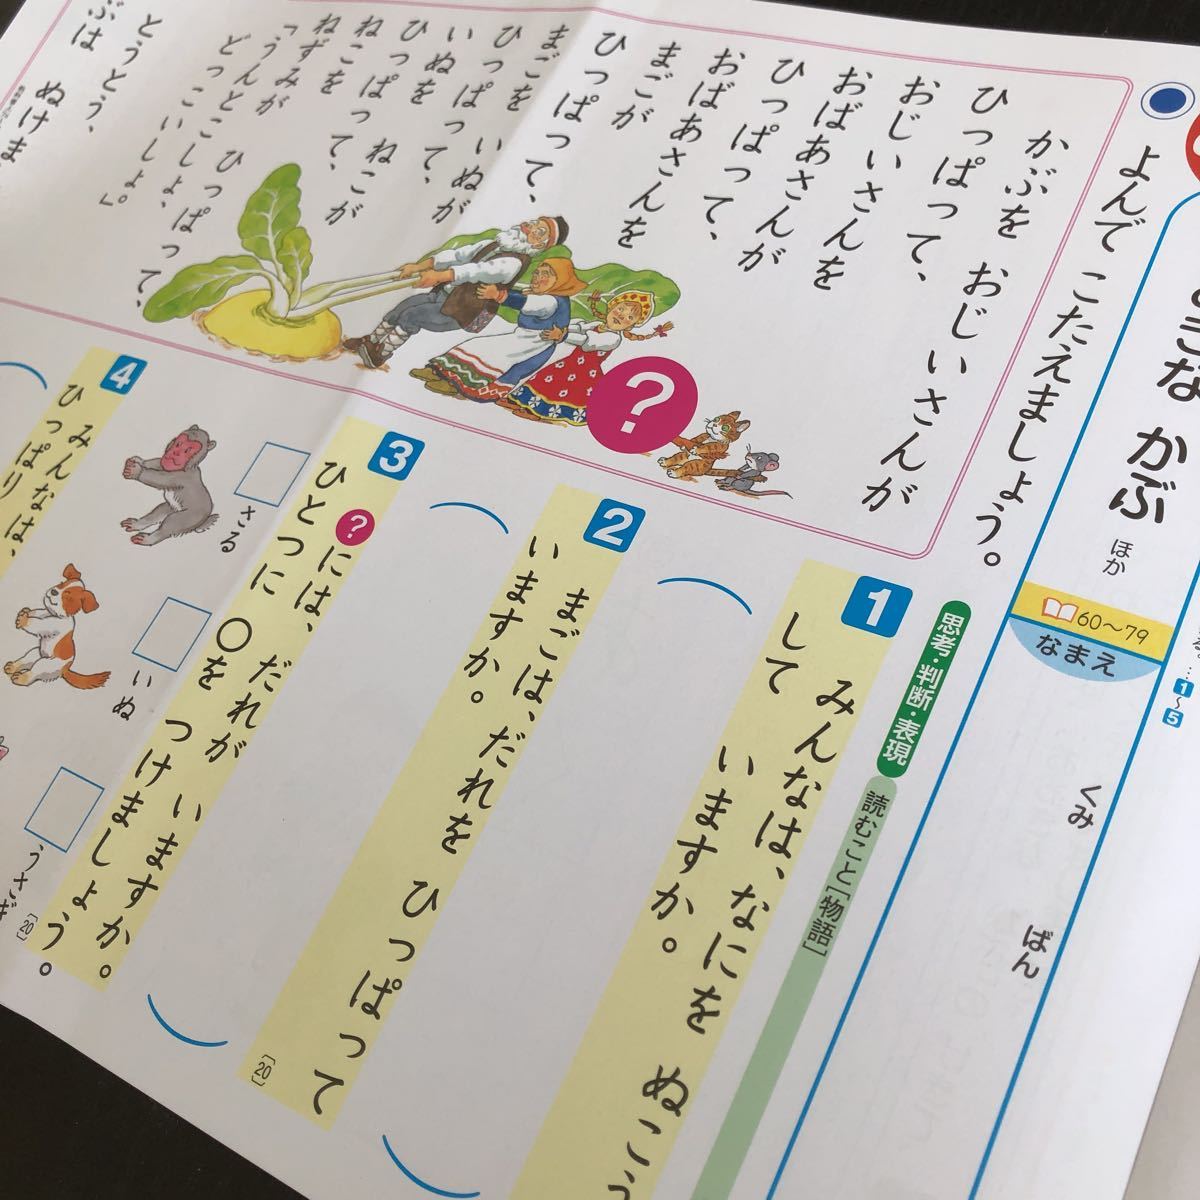 かぶ ほか
60〜79
なまえ
くみ
ばん
1〜5
よんで こたえましょう。
かぶを おじいさんが
ひっぱって、
おじいさんを
おばあさんが
ひっぱって、
おばあさんを
まごが
ひっぱって、
まごを いぬが
ひっぱって、
いぬを ねこが
ひっぱって、
ねこを
ねずみが ひっぱって、
「うんとこしょ、
どっこいしょ。」
とうとう、
ぶは ぬけま
?
思考・判断・表現
読むこと[物語]
1
みんなは、なにを ぬこう
して いますか。
2
まごは、だれを ひっぱって
いますか。
[20]
3
?には、だれが いますか。
ひとつに ○を つけましょう。
[20]
さる
いぬ
うさぎ
4
みんなは、
ひっぱり